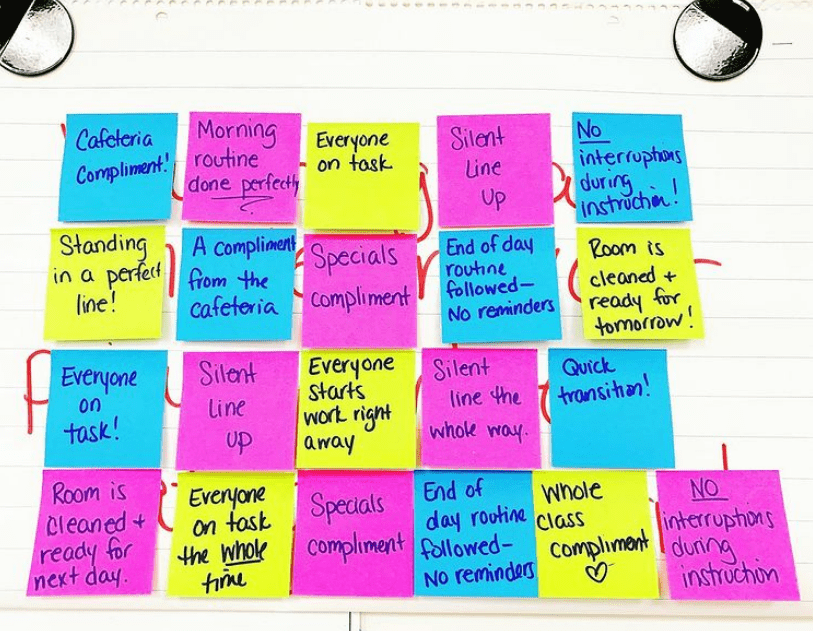 Cafeteria
Compliment!
Morning
routine
done perfectly
Everyone
on task
Silent
Line
Up
No
interruptions
during
instruction!
Standing
in a perfect
line!
A compliment
from the
cafeteria
Specials
compliment
End of day
routine
followed—
No reminders
Room is
cleaned +
ready for
tomorrow!
Everyone
on
task!
Silent
Line
up
Everyone
starts
work right
away
Silent
line the
whole way.
Quick
transition!
Room is
Cleaned +
ready for
next day.
Everyone
on task
the whole
time
Specials
compliment
End of
day routine
followed—
No reminders
Whole
class
compliment
♡
NO
interruptions
during
instruction